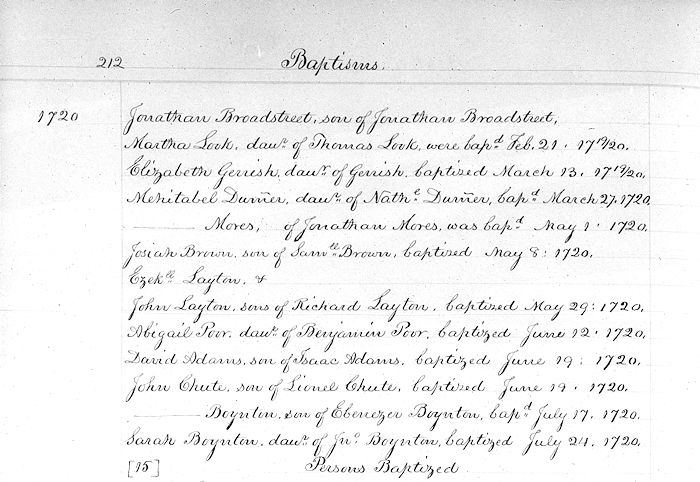 212 Baptisms.
1720 Jonathan Broadstreet, son of Jonathan Broadstreet,
Martha Look, dauʳ. of Thomas Look, were bapᵈ Feb. 21. 17¹⁹/20.
Elizabeth Gerrish, dauʳ. of Gerrish, baptized March 13. 17¹⁹/20,
Mehitabel Dum̃er, dauʳ. of Nathˡ. Dum̃er, bapᵈ March 27, 1720,
——— Mores, of Jonathan Mores, was bapᵈ May 1. 1720,
Josiah Brown, son of Samˡˡ Brown, baptized May 8: 1720,
Ezekˡˡ Layton, &
John Layton, sons of Richard Layton, baptized May 29: 1720,
Abigail Poor, dauʳ. of Benjamin Poor, baptized June 12. 1720,
David Adams, son of Isaac Adams, baptized June 19: 1720,
John Chute, son of Lionel Chute, baptized June 19. 1720,
——— Boynton, son of Ebenezer Boynton, bapᵈ July 17. 1720,
Sarah Boynton, dauʳ. of Jnº. Boynton, baptized July 24. 1720,
[15] Persons Baptized